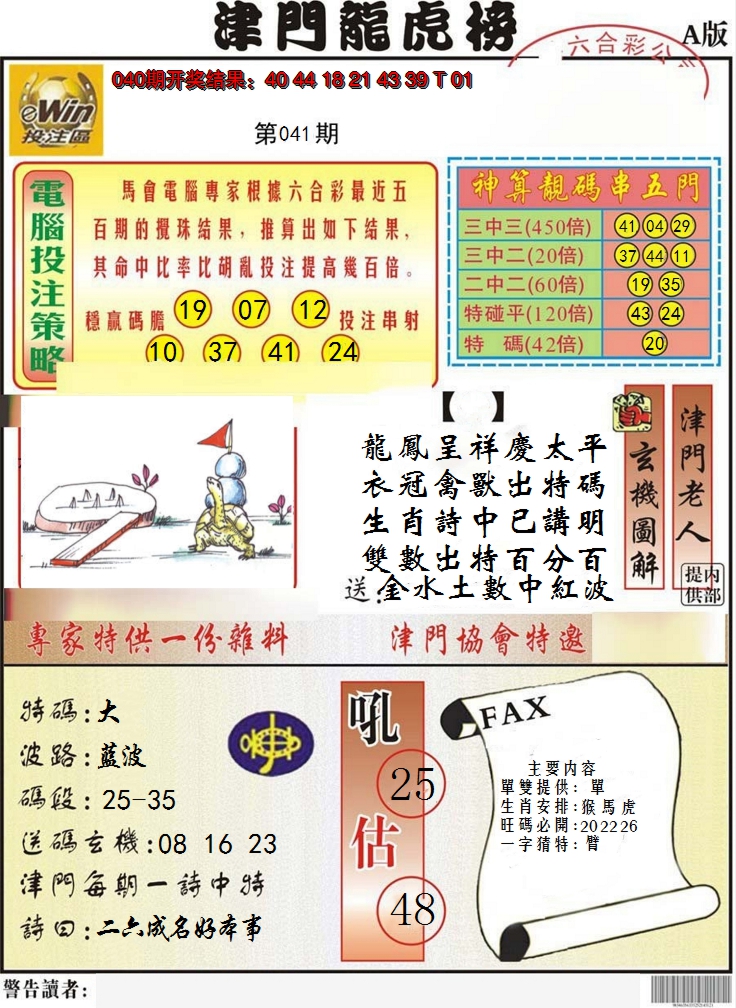 津門龍虎榜
六合彩公
A版
eWin
投注區
040期开奖结果：40 44 18 21 43 39 T 01
第041期
電腦投注策略
馬會電腦專家根據六合彩最近五
百期的攪珠结果，推算出如下结果，
其命中比率比胡亂投注提高幾百倍。
穩贏碼膽 19 07 12 投注串射
10 37 41 24
神算靚碼串五門
三中三(450倍) 41 04 29
三中二(20倍) 37 44 11
二中二(60倍) 19 35
特碰平(120倍) 43 24
特 碼(42倍) 20
【 】
龍鳳呈祥慶太平
衣冠禽獸出特碼
生肖詩中已講明
雙數出特百分百
送:金水土數中紅波
玄機圖解
津門老人
内部提供
專家特供一份雜料
津門協會特邀
特碼:大
波路:藍波
碼段:25-35
送碼玄機:08 16 23
津門每期一詩中特
詩曰:二六成名好本事
吼
25
估
48
FAX
主要内容
單雙提供：單
生肖安排:猴馬虎
旺碼必開:202226
一字猜特:臂
警告讀者：